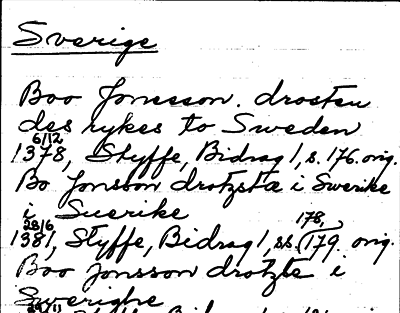 Sverige
Boo Jonsson. drosten
des rykes to Sweden
6/12
1378, Styffe, Bidrag 1, s. 176. orig.
Bo Jonsson drotzstæ i Swerike
i Suerike
28/6 178,
1381, Styffe, Bidrag 1, ss. 179. orig.
Boo Jonsson drotzte i
Swerighe